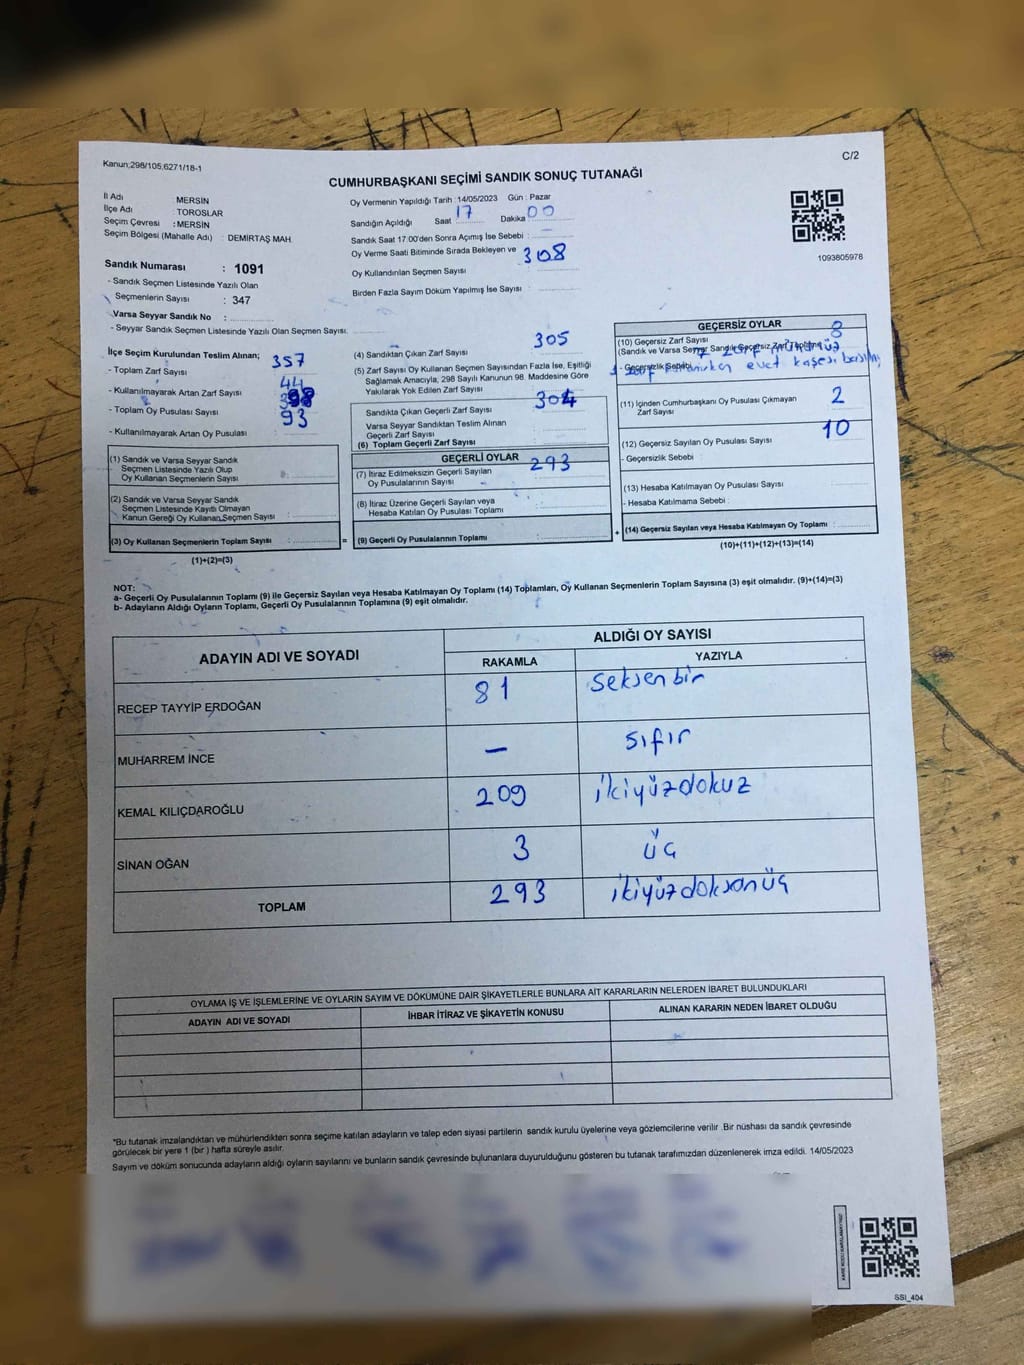 Kanun;298/105,6271/18-1
C/2
CUMHURBAŞKANI SEÇİMİ SANDIK SONUÇ TUTANAĞI
İl Adı : MERSİN
İlçe Adı : TOROSLAR
Seçim Çevresi : MERSİN
Seçim Bölgesi (Mahalle Adı) : DEMİRTAŞ MAH.
Oy Vermenin Yapıldığı Tarih : 14/05/2023 Gün : Pazar
Sandığın Açıldığı Saat 17 Dakika 00
Sandık Saat 17:00'den Sonra Açımış İse Sebebi : —
Oy Verme Saati Bitiminde Sırada Bekleyen ve 308
Oy Kullandırılan Seçmen Sayısı
Birden Fazla Sayım Döküm Yapılmış İse Sayısı :
1093805978
Sandık Numarası : 1091
- Sandık Seçmen Listesinde Yazılı Olan
Seçmenlerin Sayısı : 347
Varsa Seyyar Sandık No :
- Seyyar Sandık Seçmen Listesinde Yazılı Olan Seçmen Sayısı.
İlçe Seçim Kurulundan Teslim Alınan;
- Toplam Zarf Sayısı 357
- Kullanılmayarak Artan Zarf Sayısı 44
- Toplam Oy Pusulası Sayısı
- Kullanılmayarak Artan Oy Pusulası 93
(1) Sandık ve Varsa Seyyar Sandık
Seçmen Listesinde Yazılı Olup
Oy Kullanan Seçmenlerin Sayısı
(2) Sandık ve Varsa Seyyar Sandık
Seçmen Listesinde Kayıtlı Olmayan
Kanun Gereği Oy Kullanan Seçmen Sayısı :
(3) Oy Kullanan Seçmenlerin Toplam Sayısı : =
(1)+(2)=(3)
(4) Sandıktan Çıkan Zarf Sayısı 305
(5) Zarf Sayısı Oy Kullanan Seçmen Sayısından Fazla İse, Eşitliği
Sağlamak Amacıyla, 298 Sayılı Kanunun 98. Maddesine Göre
Yakılarak Yok Edilen Zarf Sayısı
Sandıkta Çıkan Geçerli Zarf Sayısı 304
Varsa Seyyar Sandıktan Teslim Alınan
Geçerli Zarf Sayısı
(6) Toplam Geçerli Zarf Sayısı
GEÇERLİ OYLAR
(7) İtiraz Edilmeksizin Geçerli Sayılan 293
Oy Pusulalarının Sayısı
(8) İtiraz Üzerine Geçerli Sayılan veya
Hesaba Katılan Oy Pusulası Toplamı
(9) Geçerli Oy Pusulalarının Toplamı : +
GEÇERSİZ OYLAR
(10) Geçersiz Zarf Sayısı
(Sandık ve Varsa Seyyar Sandık Geçersiz Zarf Toplamı)
- Geçersizlik Sebebi evet kaşesi
(11) İçinden Cumhurbaşkanı Oy Pusulası Çıkmayan 2
Zarf Sayısı
(12) Geçersiz Sayılan Oy Pusulası Sayısı 10
- Geçersizlik Sebebi :
(13) Hesaba Katılmayan Oy Pusulası Sayısı
- Hesaba Katılmama Sebebi :
(14) Geçersiz Sayılan veya Hesaba Katılmayan Oy Toplamı :
(10)+(11)+(12)+(13)=(14)
NOT:
a- Geçerli Oy Pusulalarının Toplamı (9) ile Geçersiz Sayılan veya Hesaba Katılmayan Oy Toplamı (14) Toplamları, Oy Kullanan Seçmenlerin Toplam Sayısına (3) eşit olmalıdır. (9)+(14)=(3)
b- Adayların Aldığı Oyların Toplamı, Geçerli Oy Pusulalarının Toplamına (9) eşit olmalıdır.
ADAYIN ADI VE SOYADI ALDIĞI OY SAYISI
RAKAMLA YAZIYLA
RECEP TAYYİP ERDOĞAN 81 seksenbir
MUHARREM İNCE — sıfır
KEMAL KILIÇDAROĞLU 209 ikiyüzdokuz
SİNAN OĞAN 3 üç
TOPLAM 293 ikiyüzdoksanüç
OYLAMA İŞ VE İŞLEMLERİNE VE OYLARIN SAYIM VE DÖKÜMÜNE DAİR ŞİKAYETLERLE BUNLARA AİT KARARLARIN NELERDEN İBARET BULUNDUKLARI
ADAYIN ADI VE SOYADI İHBAR İTİRAZ VE ŞİKAYETİN KONUSU ALINAN KARARIN NEDEN İBARET OLDUĞU
*Bu tutanak imzalandıktan ve mühürlendikten sonra seçime katılan adayların ve talep eden siyasi partilerin sandık kurulu üyelerine veya gözlemcilerine verilir .Bir nüshası da sandık çevresinde
görülecek bir yere 1 (bir ) hafta süreyle asılır.
Sayım ve döküm sonucunda adayların aldığı oyların sayılarını ve bunların sandık çevresinde bulunanlara duyurulduğunu gösteren bu tutanak tarafımızdan düzenlenerek imza edildi. 14/05/2023
SSI_404